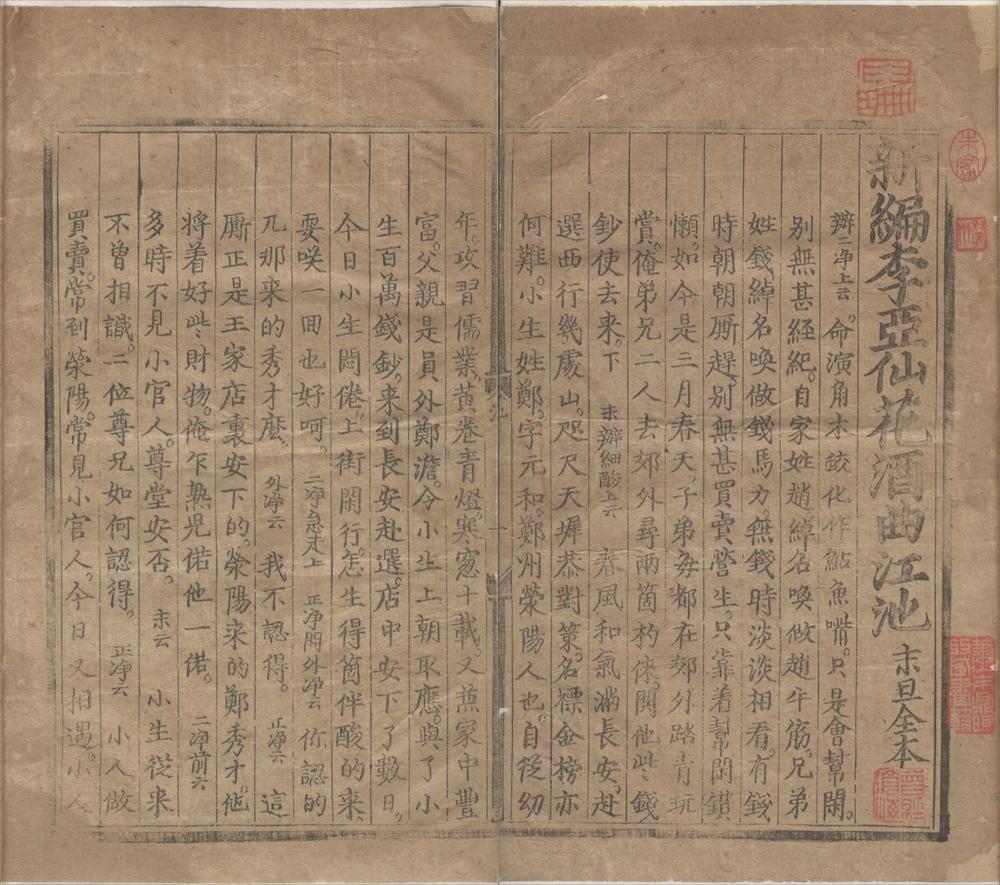 新編李亞仙花酒曲江池 末旦全本
辦二净上云。命演角木蛟化作鮎魚嘴。只是會幫閑。
別無甚經紀。自家姓趙綽名喚做趙牛筋。兄弟
姓錢綽名喚做錢馬力。無錢時淡淡相看。有錢
時朝朝厮趕。別無甚買賣營生。只靠着幫閑鑽
懶。如今是三月春天。子弟每都在郊外踏青玩
賞。俺弟兄二人去郊外尋兩箇杓俫。閗他些錢
鈔使去來。下 末辦細酸上云 春風和氣滿長安。赴
選西行幾處山。咫尺天墀恭對策。名標金榜亦
何難。小生姓鄭。字元和。鄭州滎陽人也。自從幼
年。攻習儒業。黄卷青燈。寒窓十載。又兼家中豐
富。父親是員外鄭澹。令小生上朝取應。與了小
生百萬錢鈔。來到長安赴選。店中安下了數日。
今日小生悶倦。上街閑行。怎生得箇伴酸的來。
耍咲一囬也好呵。 二净急走上 正净問外净云 你認的
兀那来的秀才麽。 外净云 我不認得。 正净云 這
厮正是王家店裏安下的。滎陽来的鄭秀才。他
將着好些財物。俺乍熟兒偌他一偌。 二净前云
多時不見小官人。尊堂安否。 末云 小生從来
不曾相識。二位尊兄如何認得。 正净云 小人做
買賣。常到滎陽。常見小官人。今日又相遇。小人